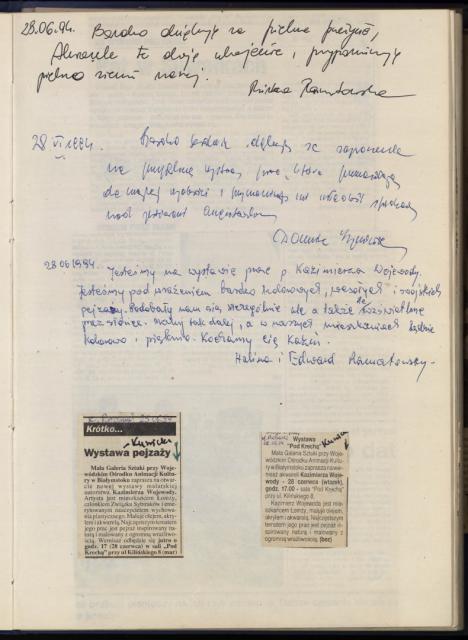 28.06.94. Bardzo dziękuję za piękne przeżycie,
Akwarele te dają ukojenie i przypominają
piękno ziemi naszej.
28 VI 1994. Bardzo serdecznie dziękuję za zaproszenie
na wystawę prac, które
do mojej
nad jeziorami
Danuta
28.06.1994. Jesteśmy na wystawie prac p. Kazimierza Wojewody.
Jesteśmy pod wrażeniem bardzo kolorowych, wesołych i swojskich
pejzaży. Podobały nam się szczególnie ule a także te rozświetlone
przez słońce. Maluj tak dalej, a w naszych mieszkaniach będzie
kolorowo i pięknie. Kochamy Cię Kaziu.
Halina i Edward
Krótko...
Kurier
Wystawa pejzaży
Mała Galeria Sztuki przy Woje-
wódzkim Ośrodku Animacji Kultu-
ry w Białymstoku zaprasza na otwar-
cie nowej wystawy malarskiej
autorstwa Kazimierza Wojewody.
Artysta jest mieszkańcem Łomży,
członkiem Związku Sybiraków i eme-
rytowanym nauczycielem wychowa-
nia plastycznego. Maluje olejem, akry-
lem i akwarelą. Najczęstszym tematem
jego prac jest pejzaż inspirowany na-
turą i malowany z ogromną wrażliwo-
ścią. Wernisaż odbędzie się jutro o
godz. 17 (28 czerwca) w sali „Pod
Krechą” przy ul Kilińskiego 8 (mar)
Wystawa
"Pod Krechą" Kurier
Mała Galeria Sztuki przy Woje-
wódzkim Ośrodku Animacji Kultu-
ry w Białymstoku zaprasza na wer-
nisaż akwareli Kazimierza Woje-
wody - 28 czerwca (wtorek),
godz. 17.00 - sala "Pod Krechą"
przy ul. Kilińskiego 8.
Kazimierz Wojewoda jest mie-
szkańcem Łomży, maluje olejem,
akrylem i akwarelą. Najczęstszym
tematem jego prac jest pejzaż in-
spirowany naturą i malowany z
ogromną wrażliwością. (bez)